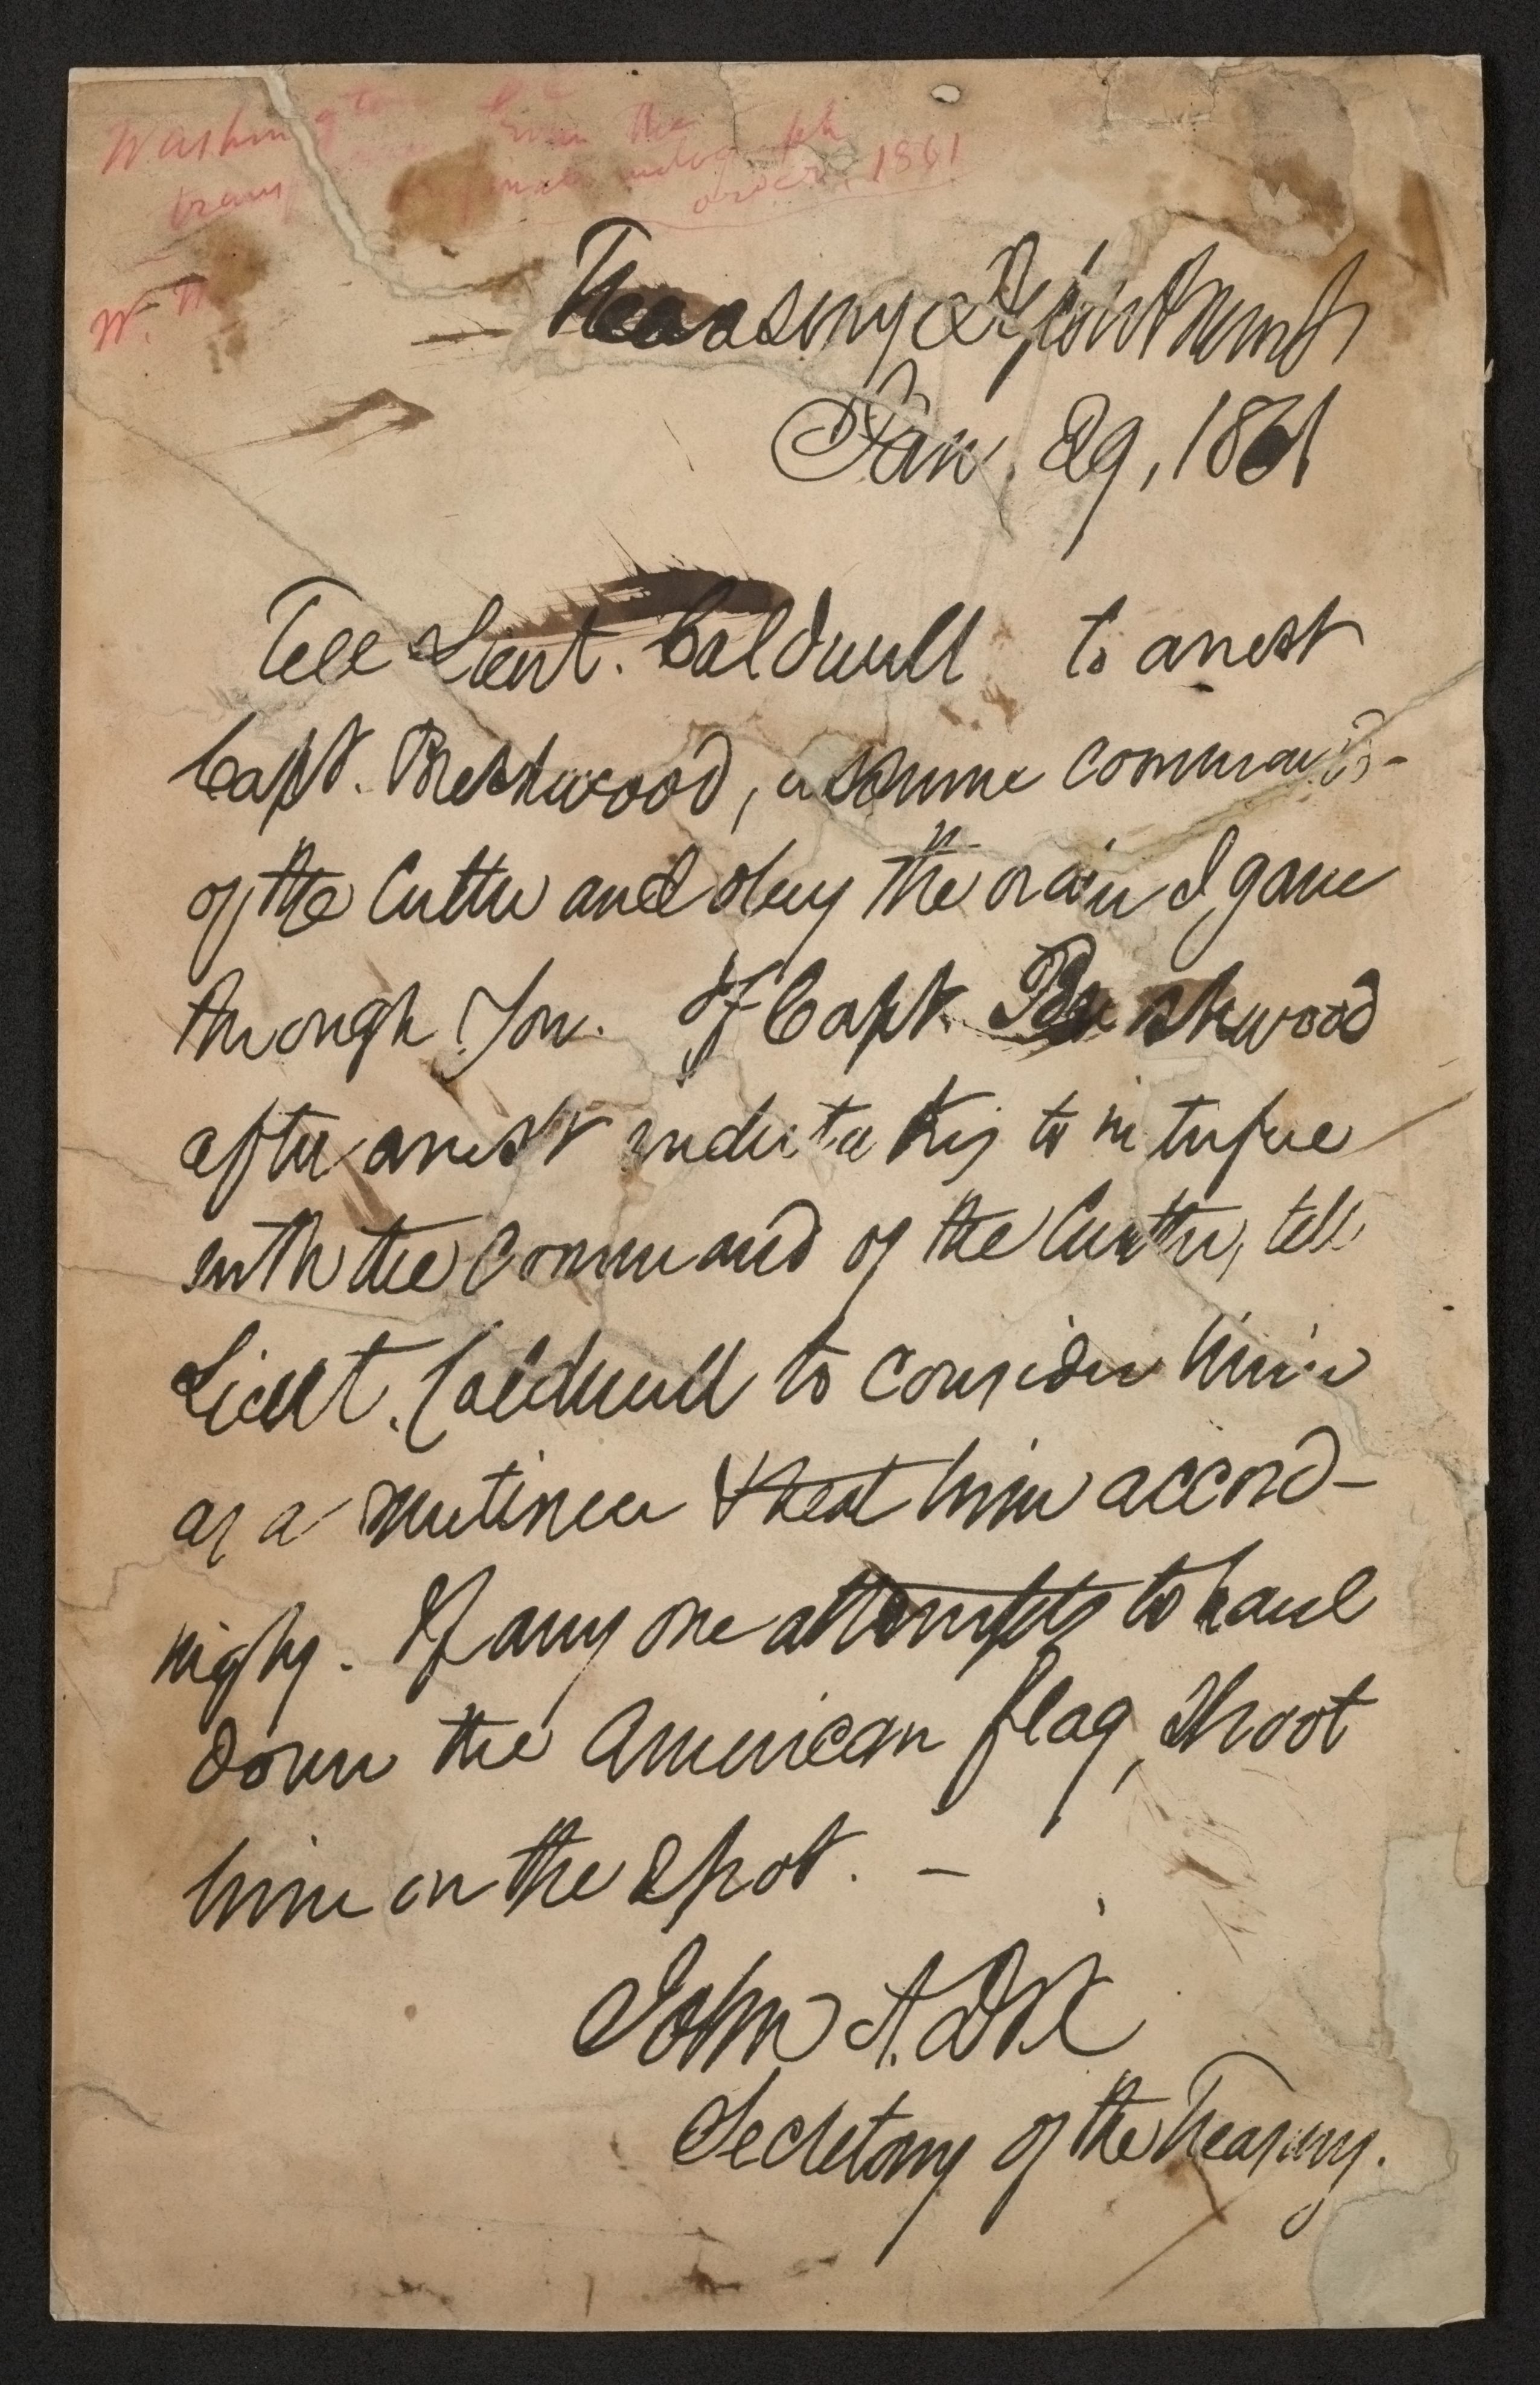 Washington
from the
order. 1861
W.
Treasury Department
Jan. 29, 1861
Tell Lieut. Caldwell to arrest
Capt. Breshwood, assume command
of the Cutter and obey the order I gave
through you. If Capt. Breshwood
after arrest undertakes to interfere
with the command of the Cutter, tell
Lieut. Caldwell to consider him
as a mutineer & treat him accord-
ingly. If any one attempts to haul
down the American flag, shoot
him on the spot. —
John A. Dix
Secretary of the Treasury.